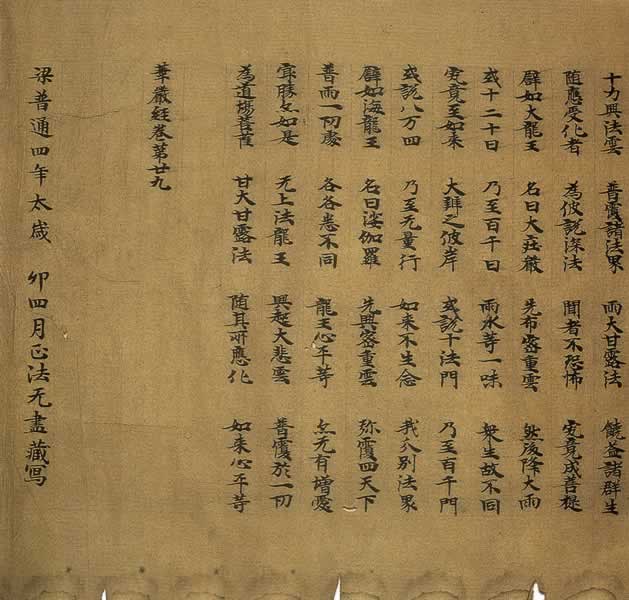 十力興法雲 普覆諸法界 雨大甘露法 饒益諸群生
随應受化者 為彼說深法 聞者不恐怖 究竟成菩提
譬如大龍王 名曰大莊嚴 先布密重雲 然後降大雨
或十二十日 乃至百千日 雨水等一味 衆生故不同
究竟至如来 大辯之彼岸 或說十法門 乃至百千門
或說八万四 乃至无量行 如来不生念 我分別法界
譬如海龍王 名曰娑伽羅 先興密重雲 弥覆四天下
普雨一切處 各各悉不同 龍王心平等 亦无有增愛
㝡勝亦如是 无上法龍王 興起大悲雲 普覆於一切
為道場菩薩 甘大甘露法 随其所應化 如来心平等
華嚴經卷第廿九
梁普通四年太歲 卯四月正法无盡藏寫